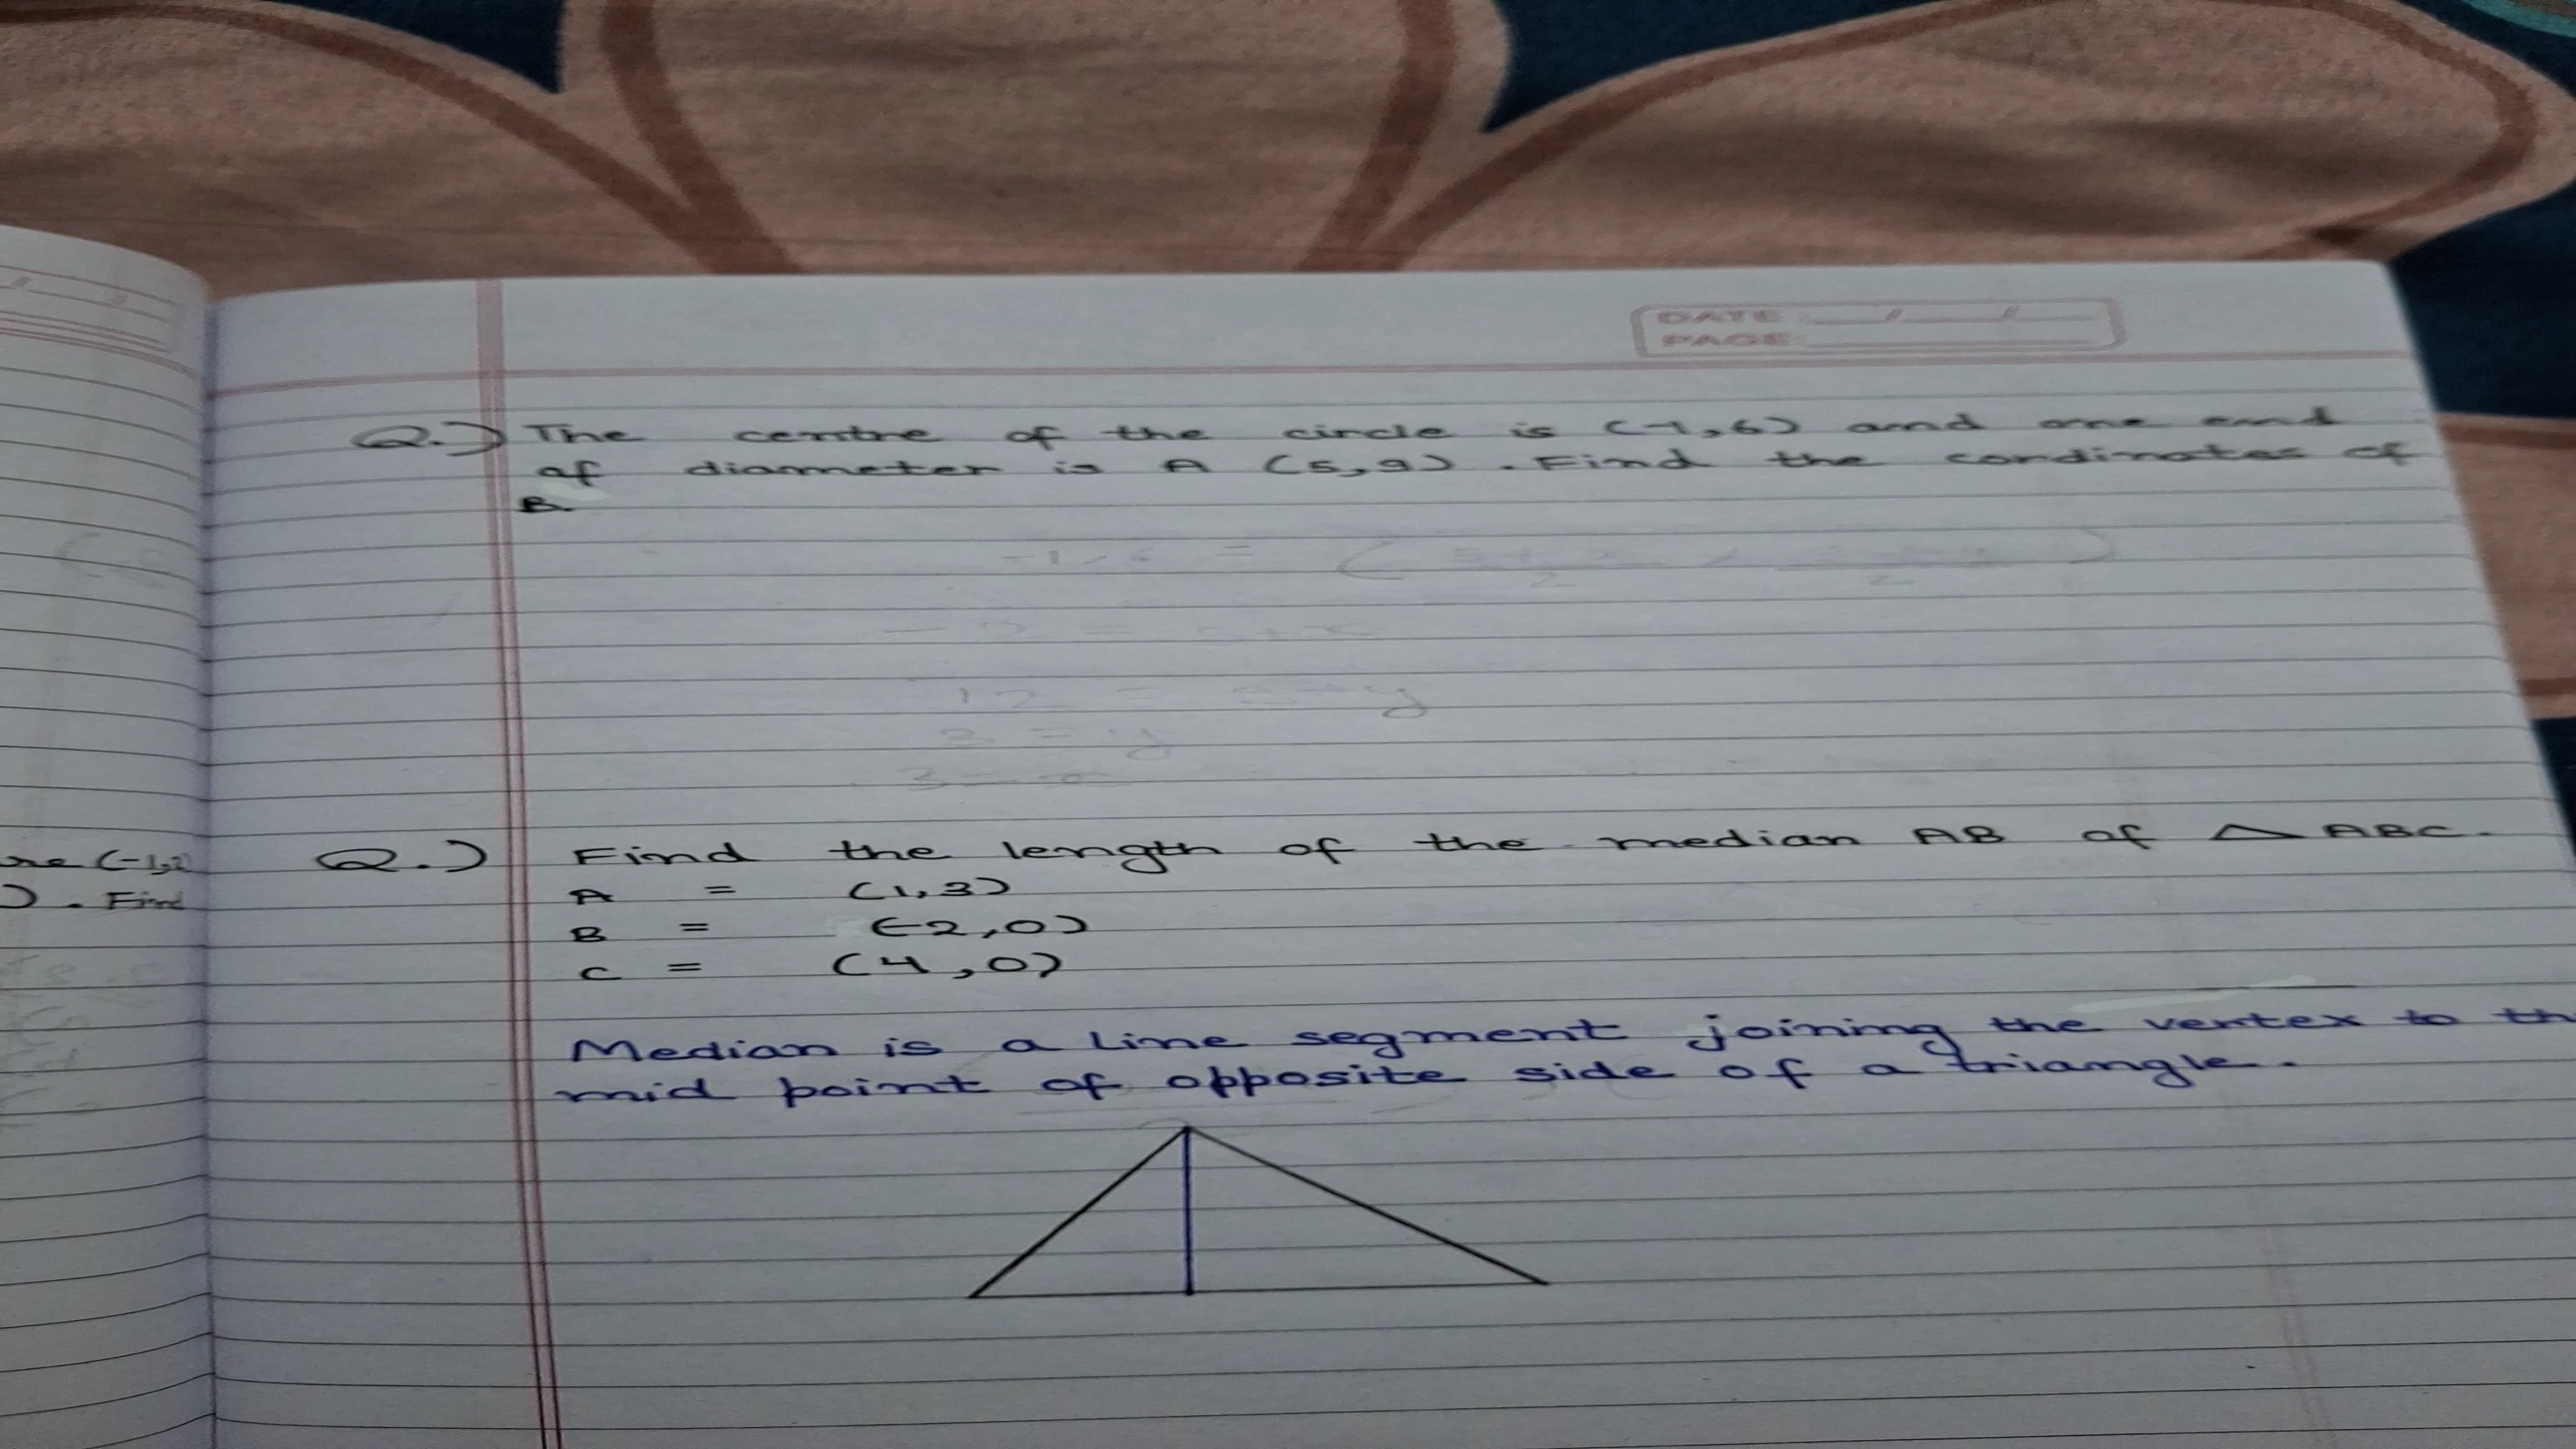 DATE
PAGE
Q.) The centre of the circle is (-1,6) and one end
of diameter is A (5,9). Find the cordinates of
B
-1,6 = ( 5+x / 2 , / 2 )
12 = 9+y
3 = y
ne (-1,2)
). Find
Q.) Find the length of the median AB of △ ABC.
A = (1,3)
B = (-2,0)
C = (4,0)
Median is a line segment joining the vertex to th
mid point of opposite side of a triangle.